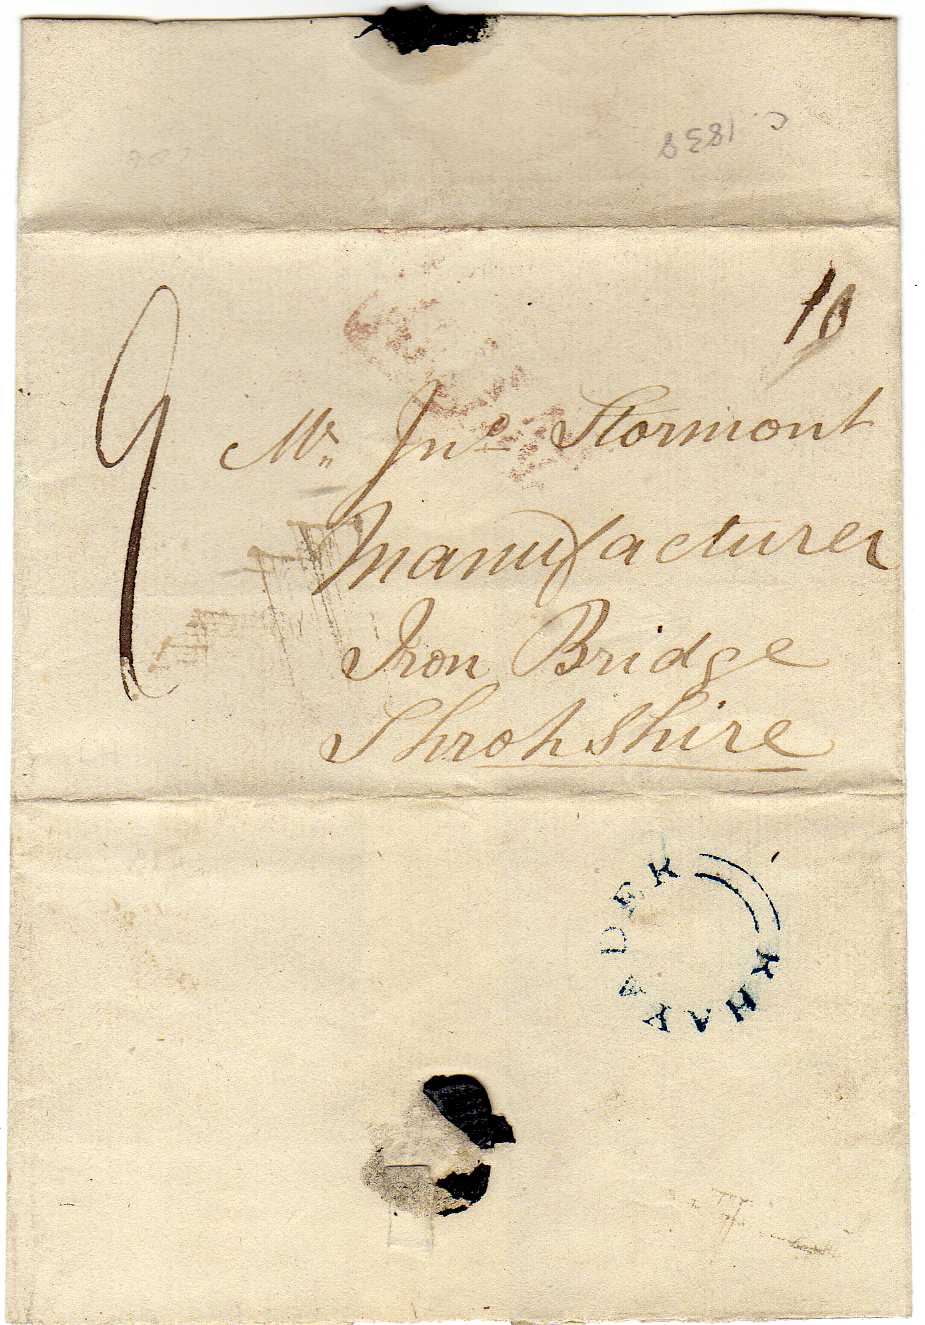 c. 1838
10
9
Mr. Jno Stormont
Manufacturer
Iron Bridge
Shropshire
RHAYADER